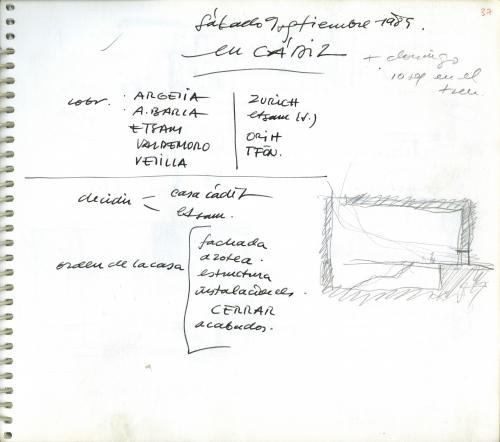 37
Sábado 9 septiembre 1989.
en CÁDIZ
+ domingo
10 sep en el
tren.
ARGELIA
A. BARCA
ETSAM
VALDEMORO
VELILLA
ZURICH
etsam (v.)
ORIH
TFÓN.
decidir
casa cádiz
etsam.
orden de la casa
fachada
azotea.
estructura
instalaciones.
CERRAR
acabados.